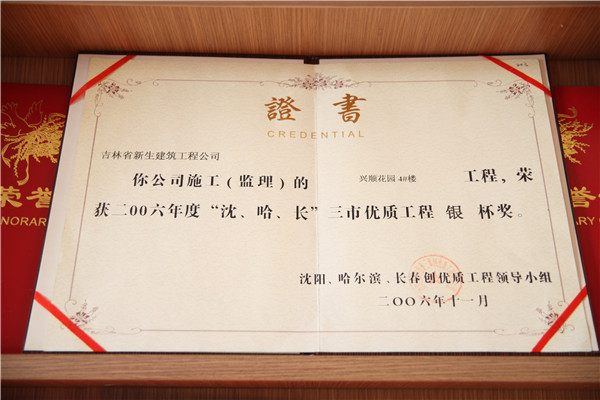 證書
CREDENTIAL
吉林省新生建筑工程公司
你公司施工(监理)的 兴顺花园4#楼 工程，荣
获二00六年度“沈、哈、长”三市优质工程 银 杯奖。
沈阳、哈尔滨、长春创优质工程领导小组
二〇〇六年十一月
荣誉
NORARY